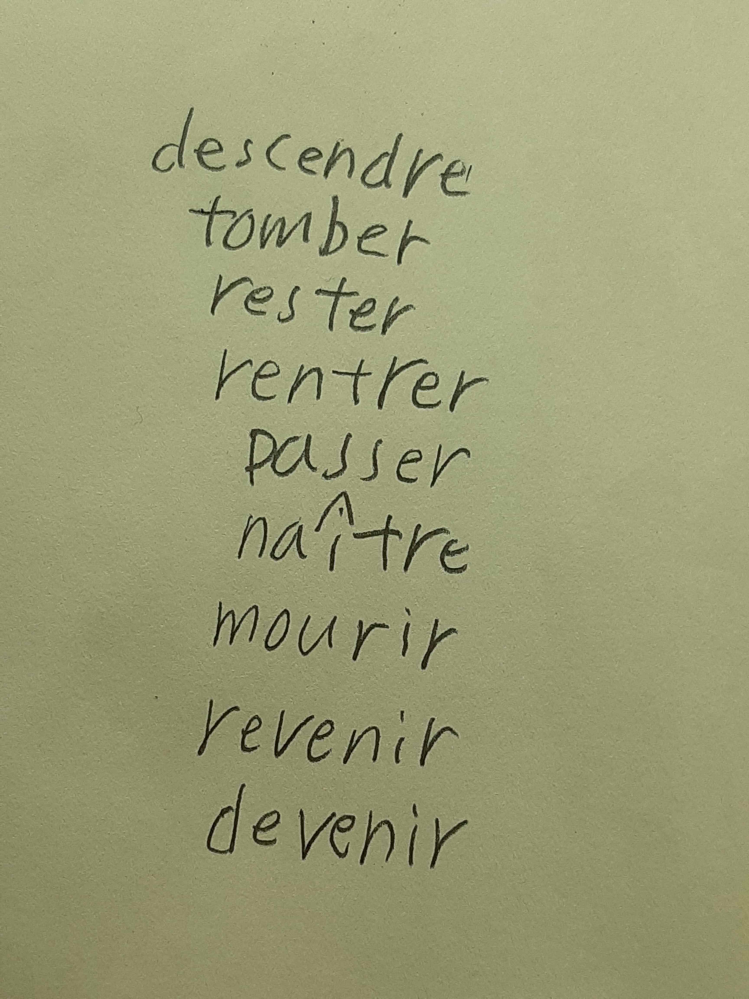 descendre
tomber
rester
rentrer
passer
naître
mourir
revenir
devenir